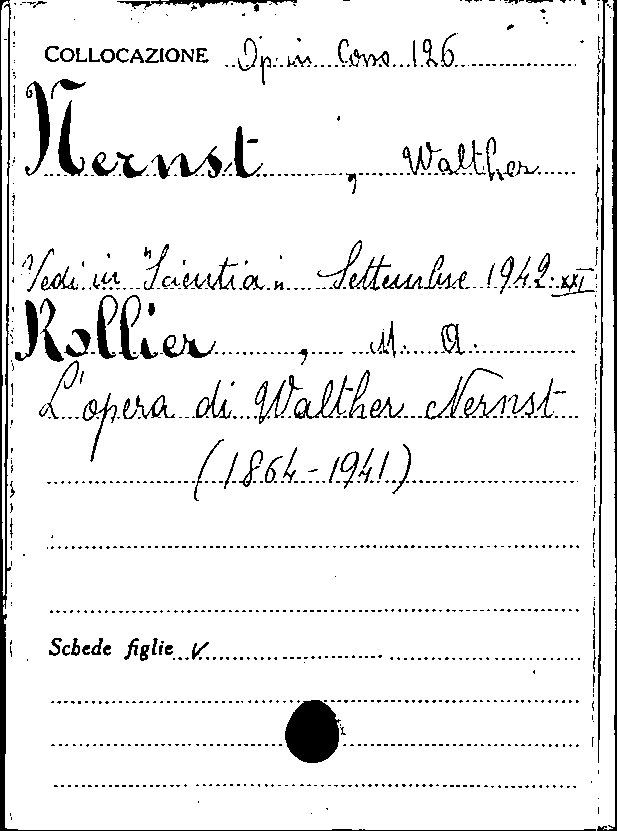 COLLOCAZIONE Op. in Cons. 126
Nernst, Walther
Vedi in "Scientia" Settembre 1942. XXI
Rollier, M. A.
L'opera di Walther Nernst
(1864-1941)
Schede figlie V